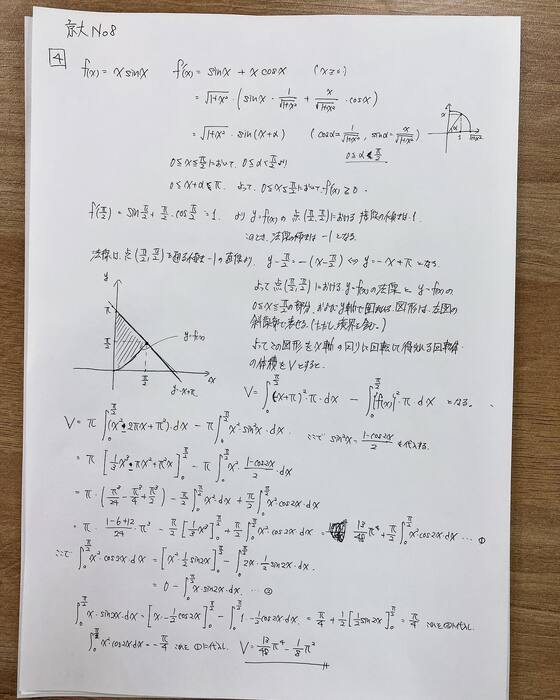 京大 No8
4
f(x) = x sinx f'(x) = sinx + x cosx (x≥0)
= √1+x² · (sinx · 1/√1+x² + x/√1+x² · cosx)
= √1+x² · sin(x+α) (cosα = 1/√1+x², sinα = x/√1+x²)
0≤x≤π/2 において、0≤α<π/2 より
0≤x+α≤π. よって、0≤x≤π/2 において f'(x)≥0.
f'(π/2) = sin π/2 + π/2 · cos π/2 = 1. より y=f(x) の 点(π/2, π/2) における 接線の傾きは 1.
このとき、法線の傾きは -1 となる.
法線は、点(π/2, π/2)を通る傾き -1 の直線より、 y-π/2 = -(x-π/2) ⇔ y=-x+π となる.
よって 点(π/2, π/2) における y=f(x) の法線 と y=f(x) の
0≤x≤π/2 の部分、および y軸で囲まれる図形は、左図の
斜線部で表せる. (ただし、境界を含む.)
よって この図形を x軸の回りに回転して得られる回転体
の体積を V とすると、
π
π/2
y=f(x)
π/2
x
y=-x+π
V = ∫₀^{π/2} (-x+π)² · π · dx - ∫₀^{π/2} {f(x)}² · π · dx となる.
V = π ∫₀^{π/2} (x² - 2πx + π²) · dx - π ∫₀^{π/2} x² sin²x · dx. ここで sin²x = 1-cos2x/2 を代入する.
= π [1/3 x³ - πx² + π²x]₀^{π/2} - π ∫₀^{π/2} x² · 1-cos2x/2 · dx
= π · (π³/24 - π³/4 + π³/2) - π/2 ∫₀^{π/2} x² · dx + π/2 ∫₀^{π/2} x² cos2x · dx
= π · 1-6+12/24 · π³ - π/2 [1/3 x³]₀^{π/2} + π/2 ∫₀^{π/2} x² cos2x · dx = 13/48 π⁴ + π/2 ∫₀^{π/2} x² · cos2x · dx ··· ①
ここで ∫₀^{π/2} x² · cos2x · dx = [x² · 1/2 sin2x]₀^{π/2} - ∫₀^{π/2} 2x · 1/2 sin2x · dx.
= 0 - ∫₀^{π/2} x · sin2x · dx. ··· ②
∫₀^{π/2} x · sin2x · dx = [x · -1/2 cos2x]₀^{π/2} - ∫₀^{π/2} 1 · -1/2 cos2x · dx. = π/4 + 1/2 [1/2 sin2x]₀^{π/2} = π/4 これを②に代入し.
∫₀^{π/2} x² · cos2x dx = -π/4 これを ① に代入し. V = 13/48 π⁴ - 1/8 π²